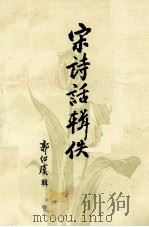 宋詩話輯佚
郭紹虞 輯